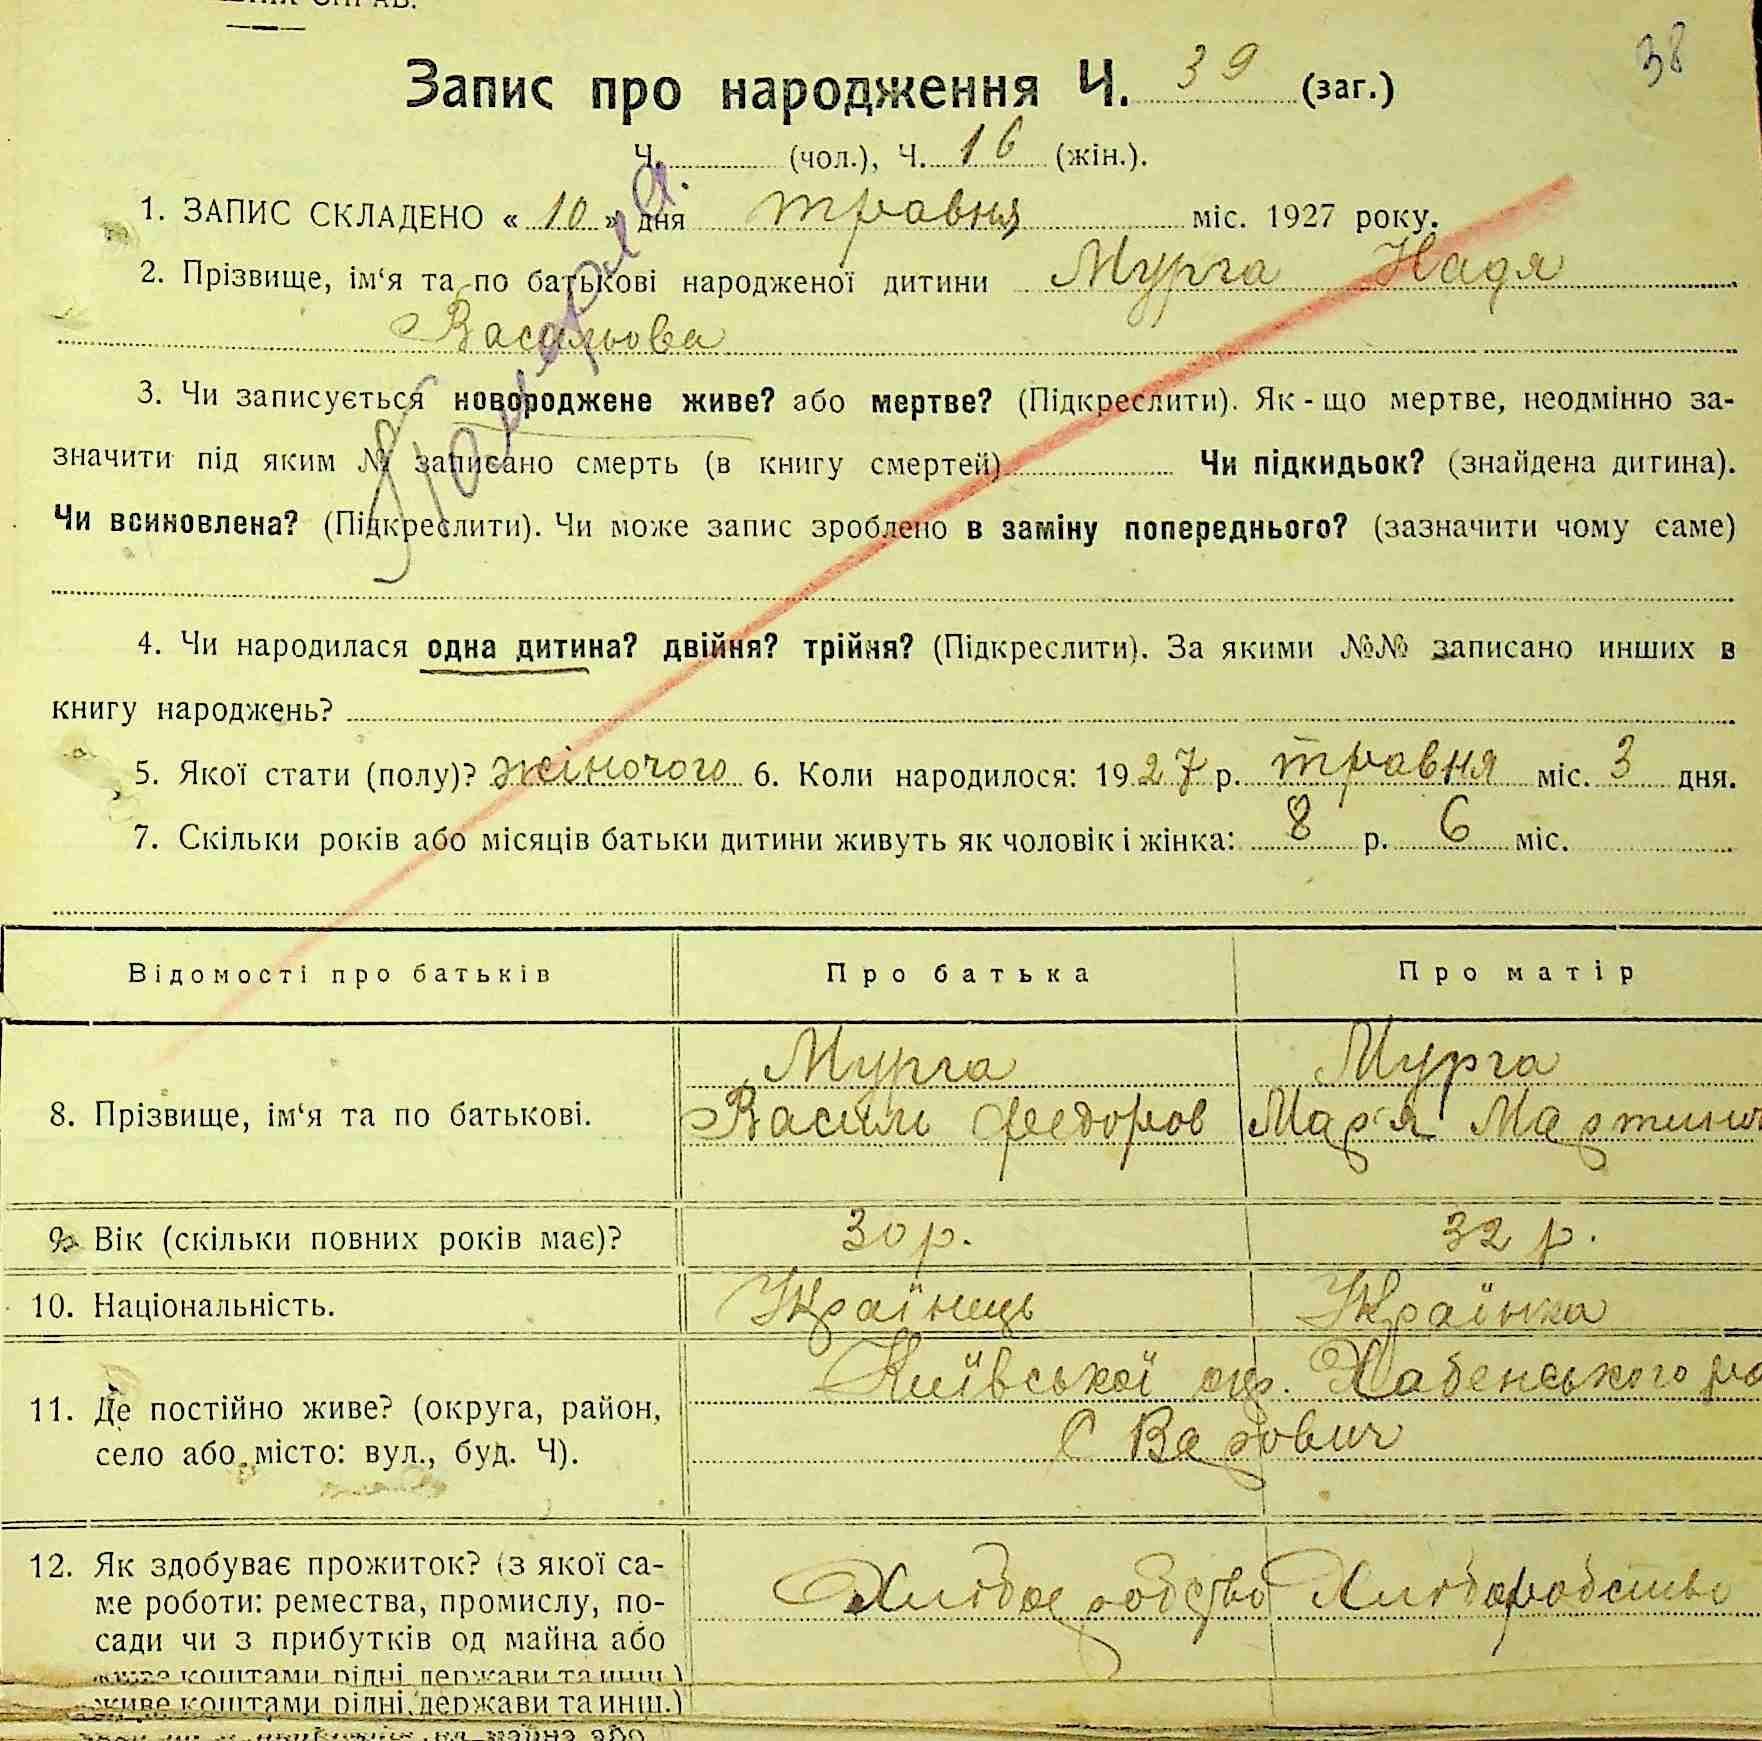 38
Запис про народження Ч. 39 (заг.)
Ч. (чол.), Ч. 16 (жін.).
1. ЗАПИС СКЛАДЕНО « 10 » дня травня міс. 1927 року.
2. Прізвище, ім‘я та по батькові народженої дитини Мурга Надя
Васильова
Померла.
3. Чи записується новороджене живе? або мертве? (Підкреслити). Як-що мертве, неодмінно за-
значити під яким № записано смерть (в книгу смертей) Чи підкидьок? (знайдена дитина).
Чи всиновлена? (Підкреслити). Чи може запис зроблено в заміну попереднього? (зазначити чому саме)
4. Чи народилася одна дитина? двійня? трійня? (Підкреслити). За якими №№ записано инших в
книгу народжень?
5. Якої стати (полу)? жіночого 6. Коли народилося: 1927 р. травня міс. 3 дня.
7. Скільки років або місяців батьки дитини живуть як чоловік і жінка: 8 р. 6 міс.
Відомості про батьків Про батька Про матір
8. Прізвище, ім‘я та по батькові. Мурга Мурга
Василь Федоров Мар'я Мартинов
9. Вік (скільки повних років має)? 30 р. 32 р.
10. Національність. Українець Українка
11. Де постійно живе? (округа, район, Київської окр. Хабенського ра
село або місто: вул., буд. Ч). С Варович
12. Як здобуває прожиток? (з якої са-
ме роботи: ремества, промислу, по- Хліборобство Хліборобство
сади чи з прибутків од майна або
живе коштами рідні, держави та инш.)
живе коштами рідні, держави та инш.)
майна або